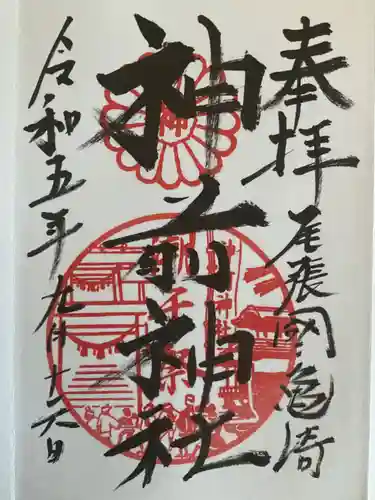 奉拝
尾張國亀崎
神前神社
令和五年九月十六日